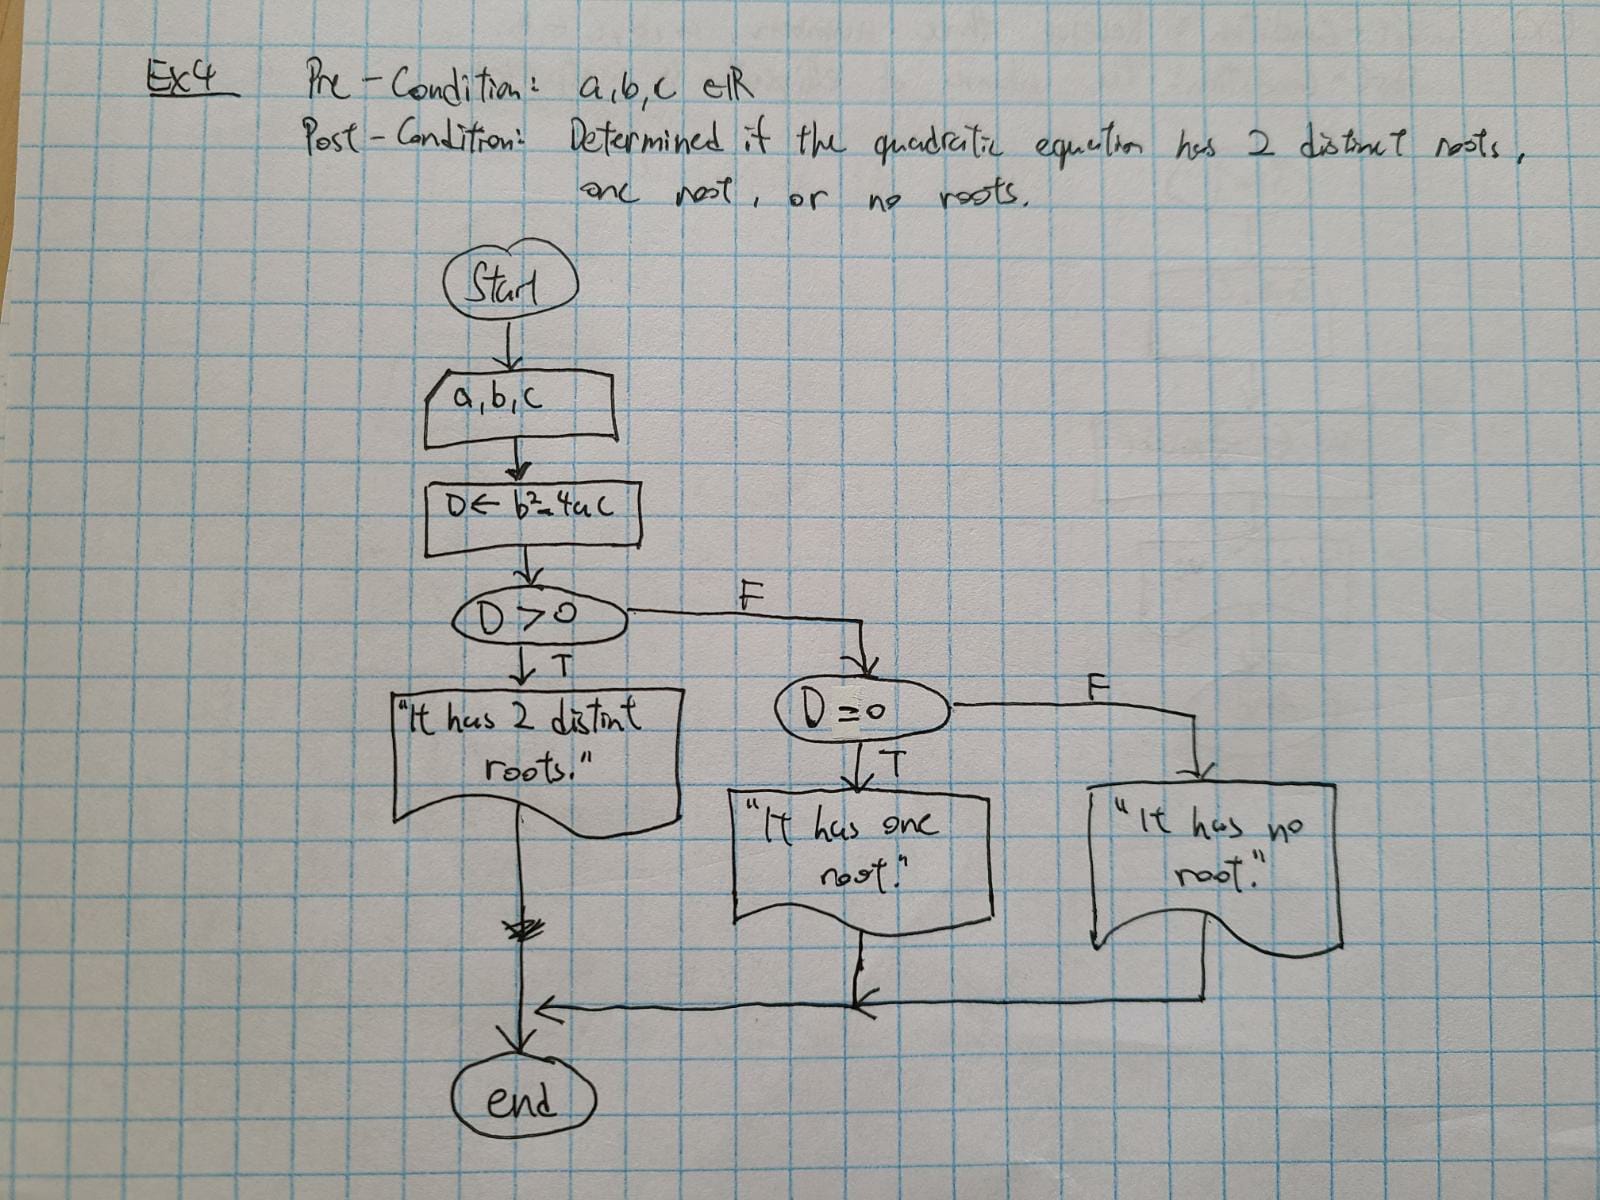 Ex4 Pre-Condition: a,b,c ∈ℝ
Post-Condition: Determined if the quadratic equation has 2 distinct roots,
one root, or no roots.
Start
a,b,c
D← b²-4ac
D > 0
F
T
"It has 2 distint
roots."
D = 0
F
T
"It has one
root."
"It has no
root."
end